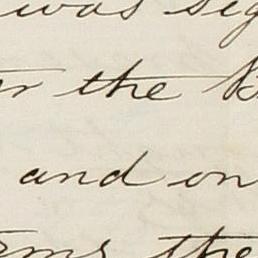 was sig
the B
and on
the